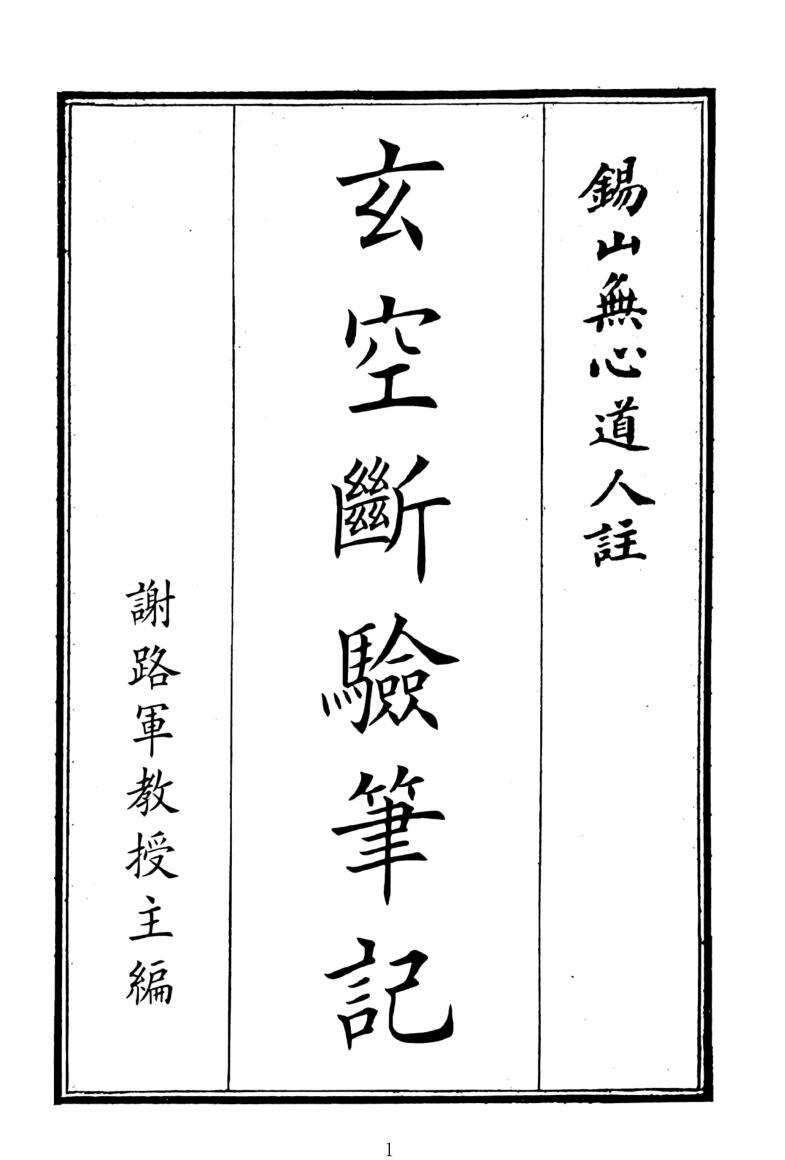 錫山無心道人註
玄空斷驗筆記
謝路軍教授主編
1